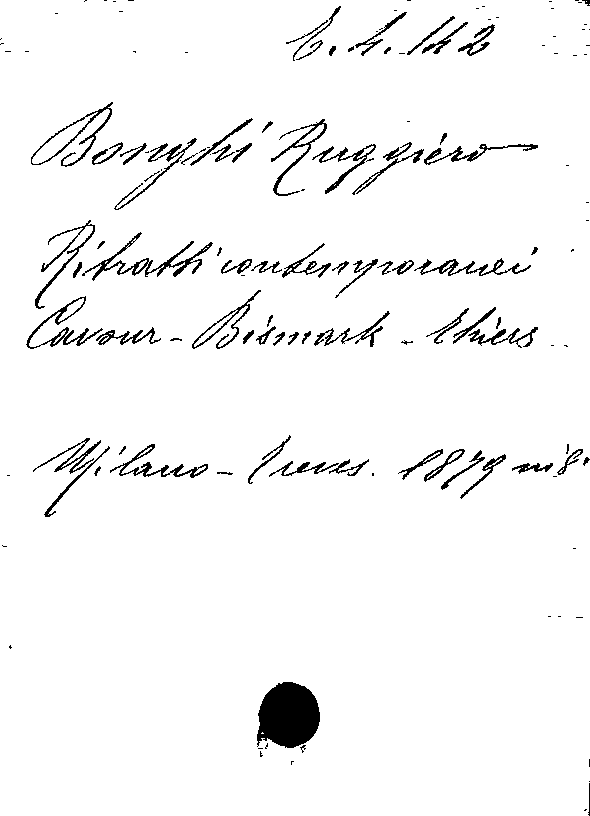 E. 4. 142
Bonghi Ruggiero
Ritratti contemporanei
Cavour - Bismark - Thiers
Milano - Treves. 1879 in 8.